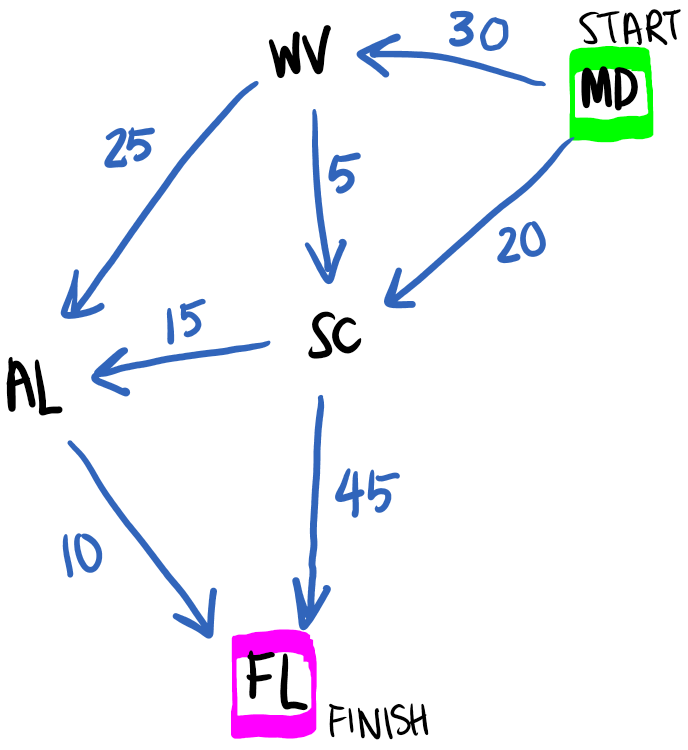 START
30
WV
MD
25
5
20
15
SC
AL
45
10
FL
FINISH